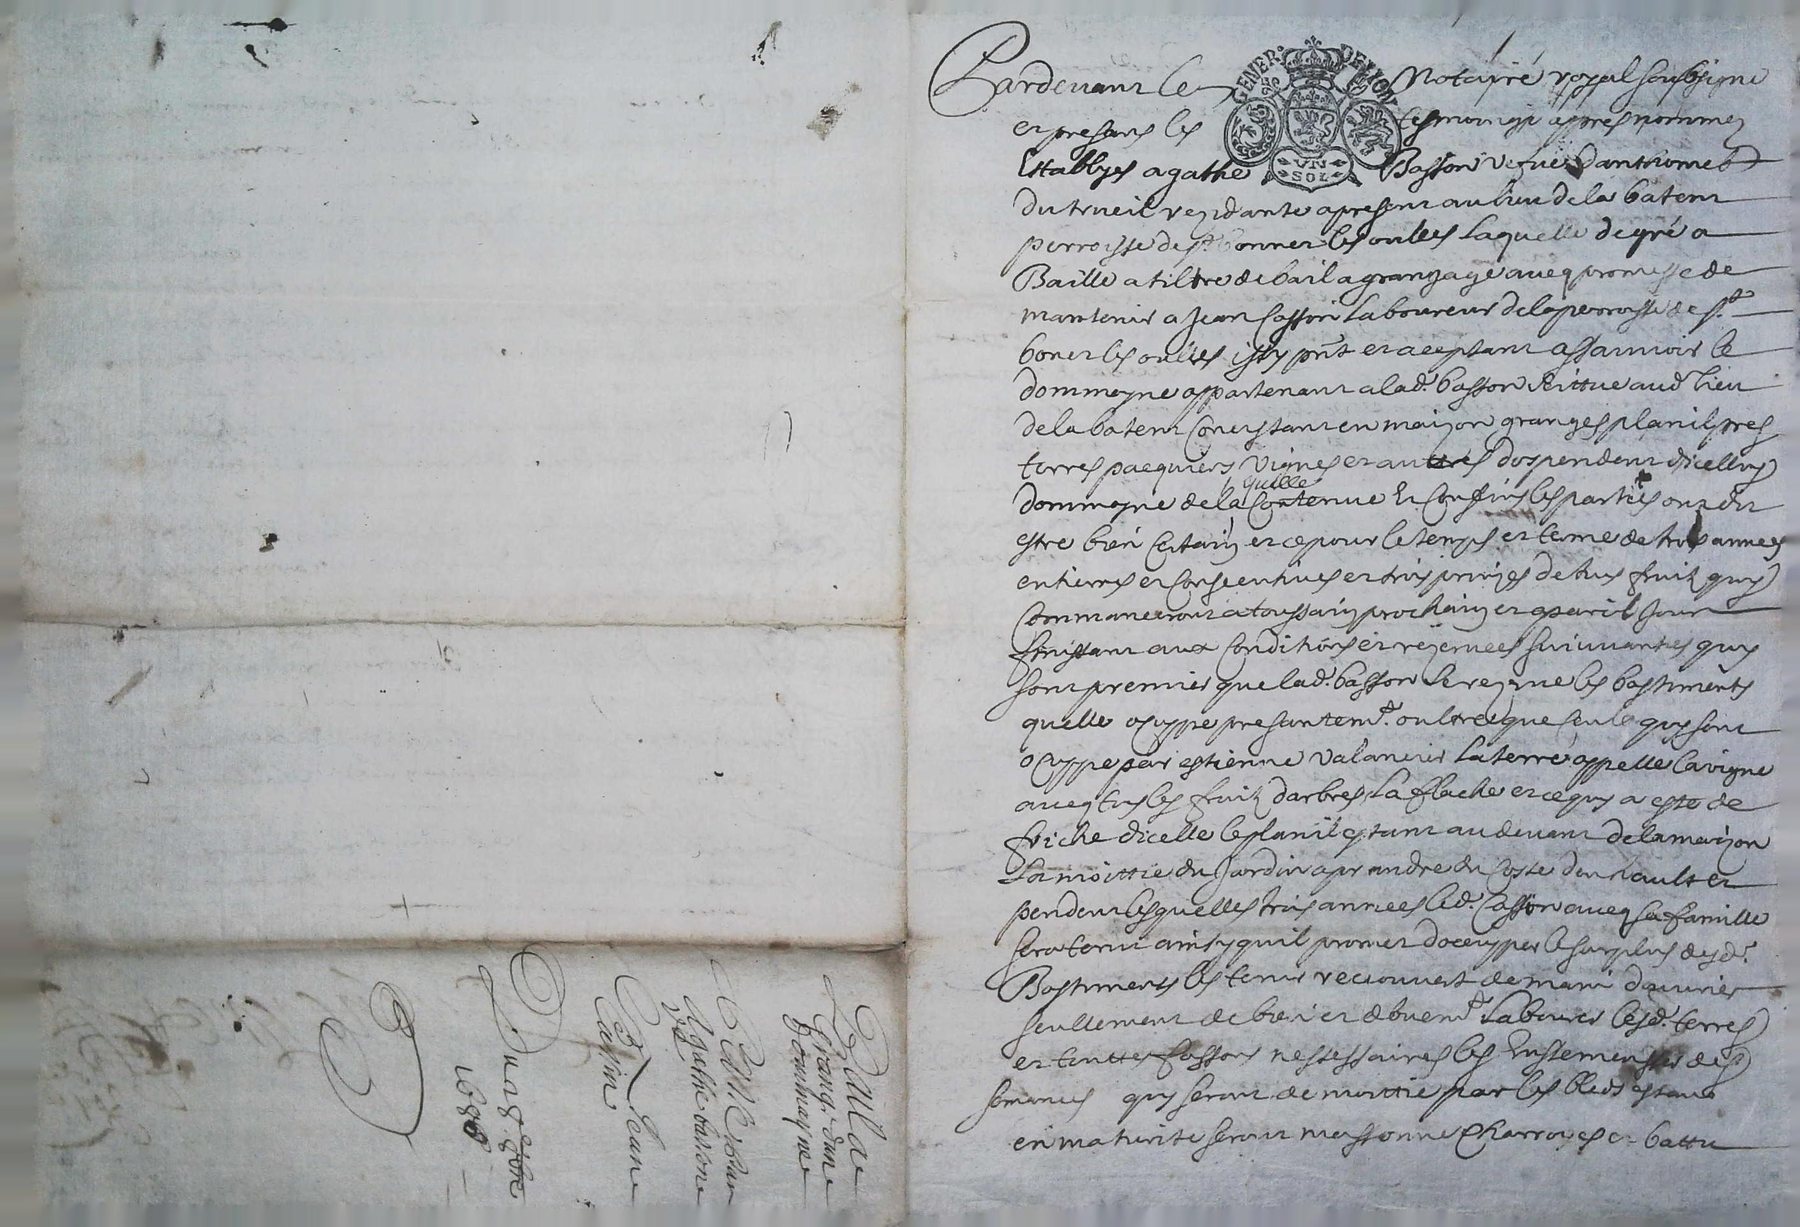 Pardevant le Notaire royal soubsigne
GENER. DE LYON
UN
SOL
et presans les tesmoingz appres nommez
Establye agathe Basson vefue danthoine
du trueil rezidante apresent au lieu de la batent
perroisse de St bonnet les oulles laquelle de gré a
Baillé a tiltre de bail a granzage avecq promesse de
mantenir a Jean Cassin laboureur de la perroisse de St
bonet les oulles issy pnt et aceptant assavoir le
dommeyne appartenant a lad. basson scittue aud lieu
de la batent Concistant en maizon granges planil pres
terres pacquiers vignes et autres despendent dicelluy
dommeyne de la quelle Contenue Et Confins les parties ont dit
estre bien Certain et ce pour le temps et terme de trois annees
entieres et Consecutives et trois prinzes de tus fruitz quy
Commanceront a toussain prochain et a pareil Jour
finissant aux Conditions et rezerves suivantes quy
sont premier que lad. basson se rezerve les bastiments
quelle ocuppe presantemt. oultre que seulx quy sont
ocuppe par estienne valancier la terre appelle la vigne
avecq tus les fruitz darbres, La flache et ce quy a este de
friche dicelle le planil estant au devant de la maizon
La moittie du Jardin a prandre du Coste den hault et
pendent lesquelles trois annees led. Cassin avecq sa famille
sera tenu ainsy quil promet doccupper le surplus desd.
Bastiments les tenir recouvert de main douvrier
seullement de bien et dhuemt Labourer lesd. terres
et touttes fassons nessessaires les Ensemensser des
semances quy seront de moittie par les bleds estant
en maturite seront messonne Charroyes et battu
Bail a
Grang. dun
Dommayne
Agathe basson
Et Jean
Cassin
Du 28
1688